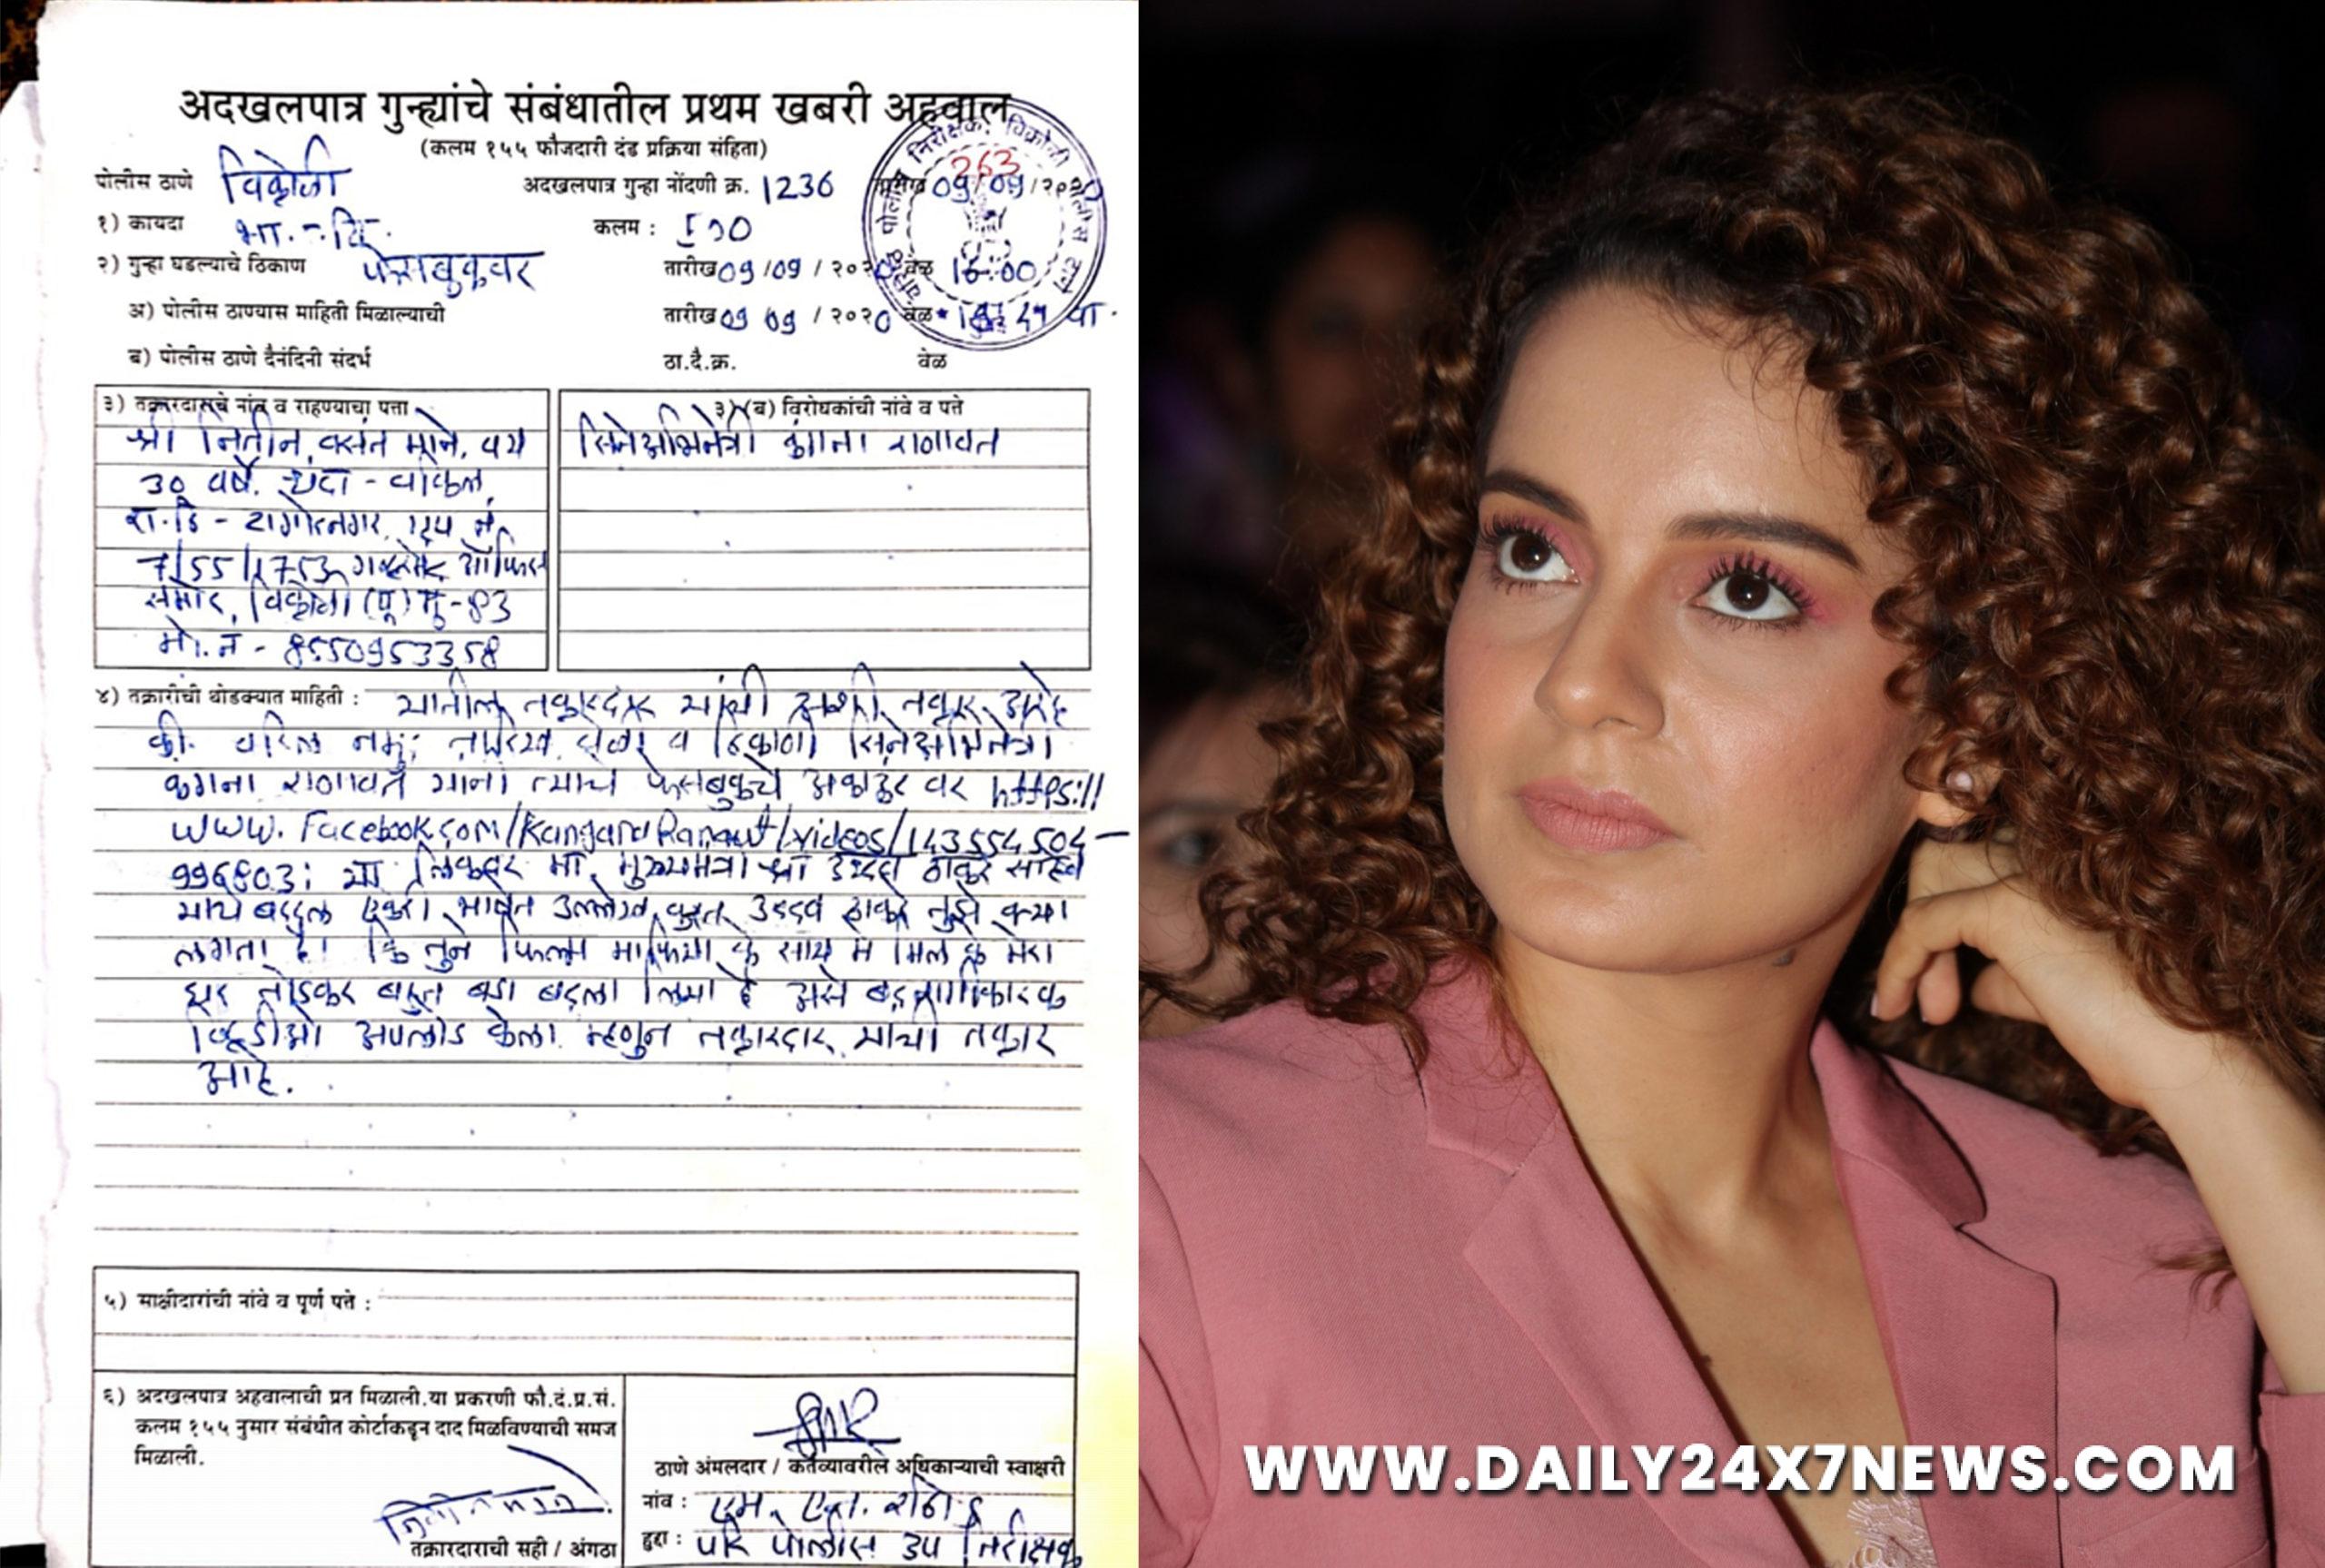 अदखलपात्र गुन्ह्यांचे संबंधातील प्रथम खबरी अहवाल
(कलम १५५ फौजदारी दंड प्रक्रिया संहिता)
पोलीस ठाणे विक्रोळी अदखलपात्र गुन्हा नोंदणी क्र. 1236 तारीख 09/09/२०२०
263
१) कायदा भा. कलम :
२) गुन्हा घडल्याचे ठिकाण फेसबुकवर तारीख 09/09/२०२० वेळ 16:00
अ) पोलीस ठाण्यास माहिती मिळाल्याची तारीख 09 09/२०२० वेळ
ब) पोलीस ठाणे दैनंदिनी संदर्भ ठा.दै.क्र. वेळ
पोलीस निरीक्षक, विक्रोळी पोलीस ठाणे
३) तक्रारदाराचे नांव व राहण्याचा पत्ता
श्री नितीन वसंत माने, वय
30 वर्षे. धंदा - वकिल,
रा.ठि - टागोरनगर,
7/55/1753, ऑफिस
समोर, विक्रोळी (पू) मु-83
मो.नं - 8550953358
३) (ब) विरोधकांची नांवे व पत्ते
सिनेअभिनेत्री कंगना राणावत
४) तक्रारीची थोडक्यात माहिती : यातील तक्रारदार यांची अशी तक्रार आहे
की. वरिल नमुद तारीख वेळी व ठिकाणी सिनेअभिनेत्री
कंगना राणावत यांनी त्यांचे फेसबुकचे अकाऊंट वर https://
www.Facebook.com/KanganaRanaut/videos/143554504-
996803; या लिंकवर मा. मुख्यमंत्री श्री उध्दव ठाकरे साहेब
यांचे बद्दल एकेरी भाषेत उल्लेख करुन उध्दव ठाकरे तुझे क्या
लगता है। कि तुने फिल्म माफिया के साथ मे मिल के मेरा
घर तोडकर बहुत बडा बदला लिया है असे बदनामीकारक
व्हिडीओ अपलोड केला म्हणुन तक्रारदार यांची तक्रार
आहे.
५) साक्षीदारांची नांवे व पूर्ण पत्ते :
६) अदखलपात्र अहवालाची प्रत मिळाली.या प्रकरणी फौ.दं.प्र.सं.
कलम १५५ नुसार संबंधीत कोर्टाकडून दाद मिळविण्याची समज
मिळाली.
तक्रारदाराची सही / अंगठा
ठाणे अंमलदार / कर्तव्यावरील अधिकाऱ्याची स्वाक्षरी
नांव : एम. एल. राठोड
हुद्दा : पोलीस उप निरीक्षक
WWW.DAILY24X7NEWS.COM